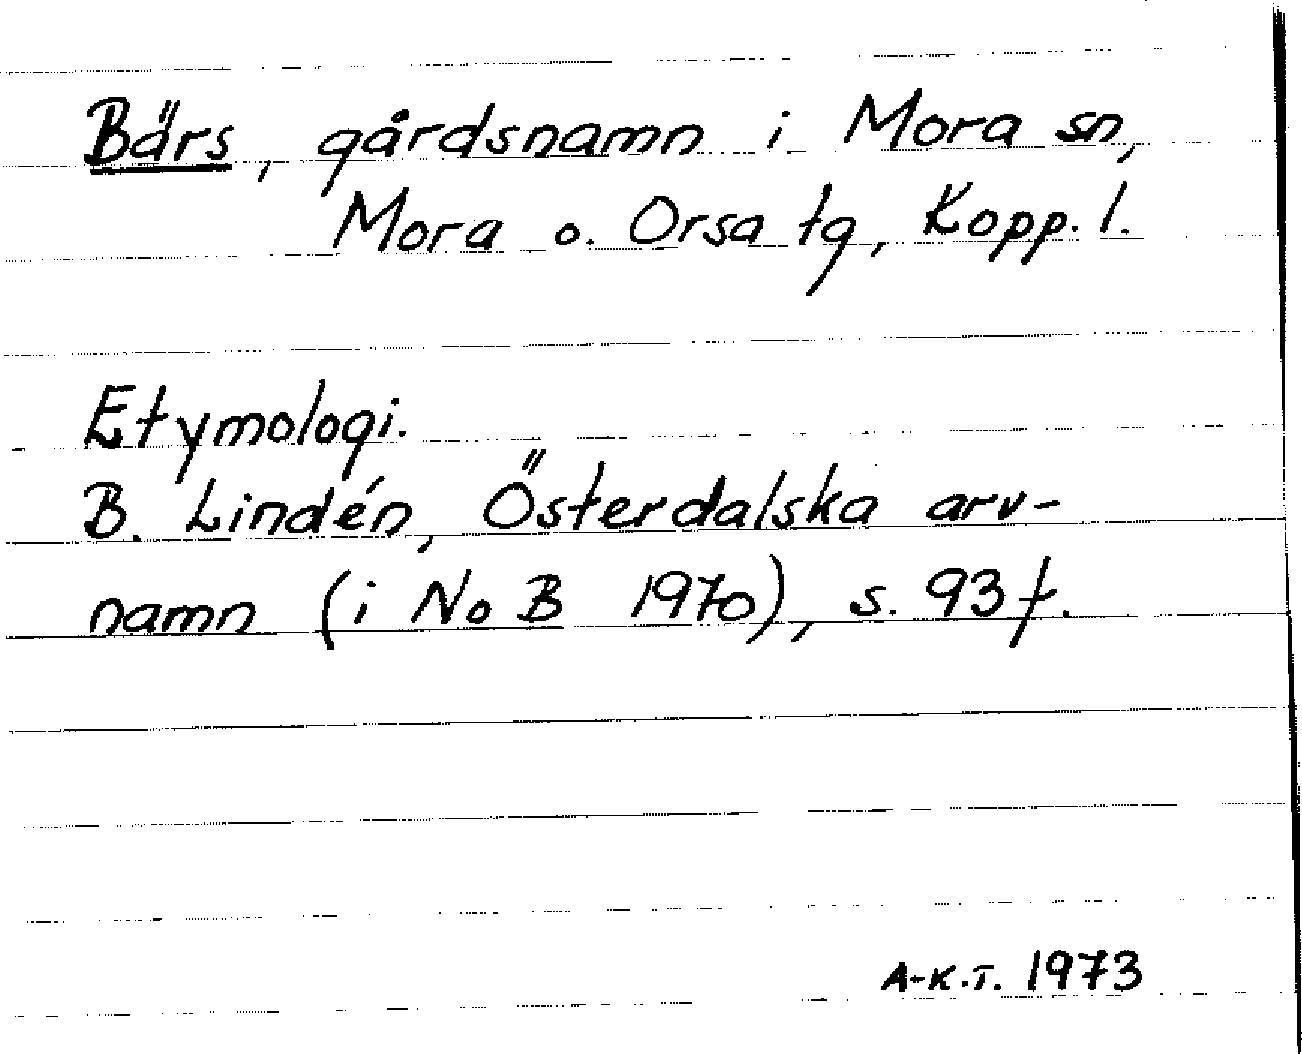 Bärs, gårdsnamn i Mora sn,
Mora o. Orsa tg, Kopp. l.
Etymologi.
B. Lindén, Österdalska arv-
namn (i NoB 1970), s. 93 f.
A-K.T. 1973